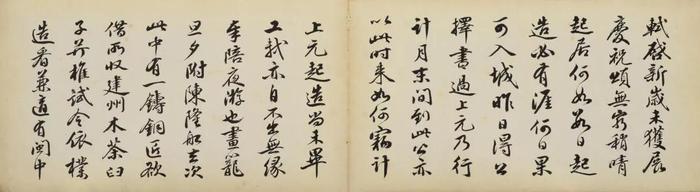 軾啓新歲未獲展
慶祝頌無窮稍晴
起居何如數日起
造必有涯何日果
可入城昨日得公
擇書過上元乃行
計月末間到此公亦
以此時來如何竊計
上元起造尚未畢
工軾亦自不出無緣
奉陪夜游也畫籠
旦夕附陳隆船去次
此中有一鑄銅匠欲
借所收建州木茶臼
子并椎試令依樣
造看兼適有閩中